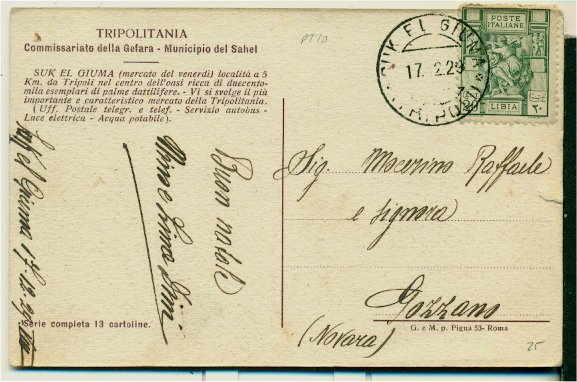 TRIPOLITANIA
Commissariato della Gefara - Municipio del Sahel
SUK EL GIUMA (mercato del venerdì) località a 5
Km. da Tripoli nel centro dell'oasi ricca di duecento-
mila esemplari di palme dattilifere. - Vi si svolge il più
importante e caratteristico mercato della Tripolitania.
( Uff. Postale telegr. e telef. - Servizio autobus -
Luce elettrica - Acqua potabile).
PT10
SUK EL GIUMA
17. 2.29
POSTE
ITALIANE
LIBIA
Buon natale
Sig. Macerino Raffaele
e signora
Gozzano
(Novara)
Serie completa 13 cartoline.
G. e M. p. Pigna 53- Roma
25